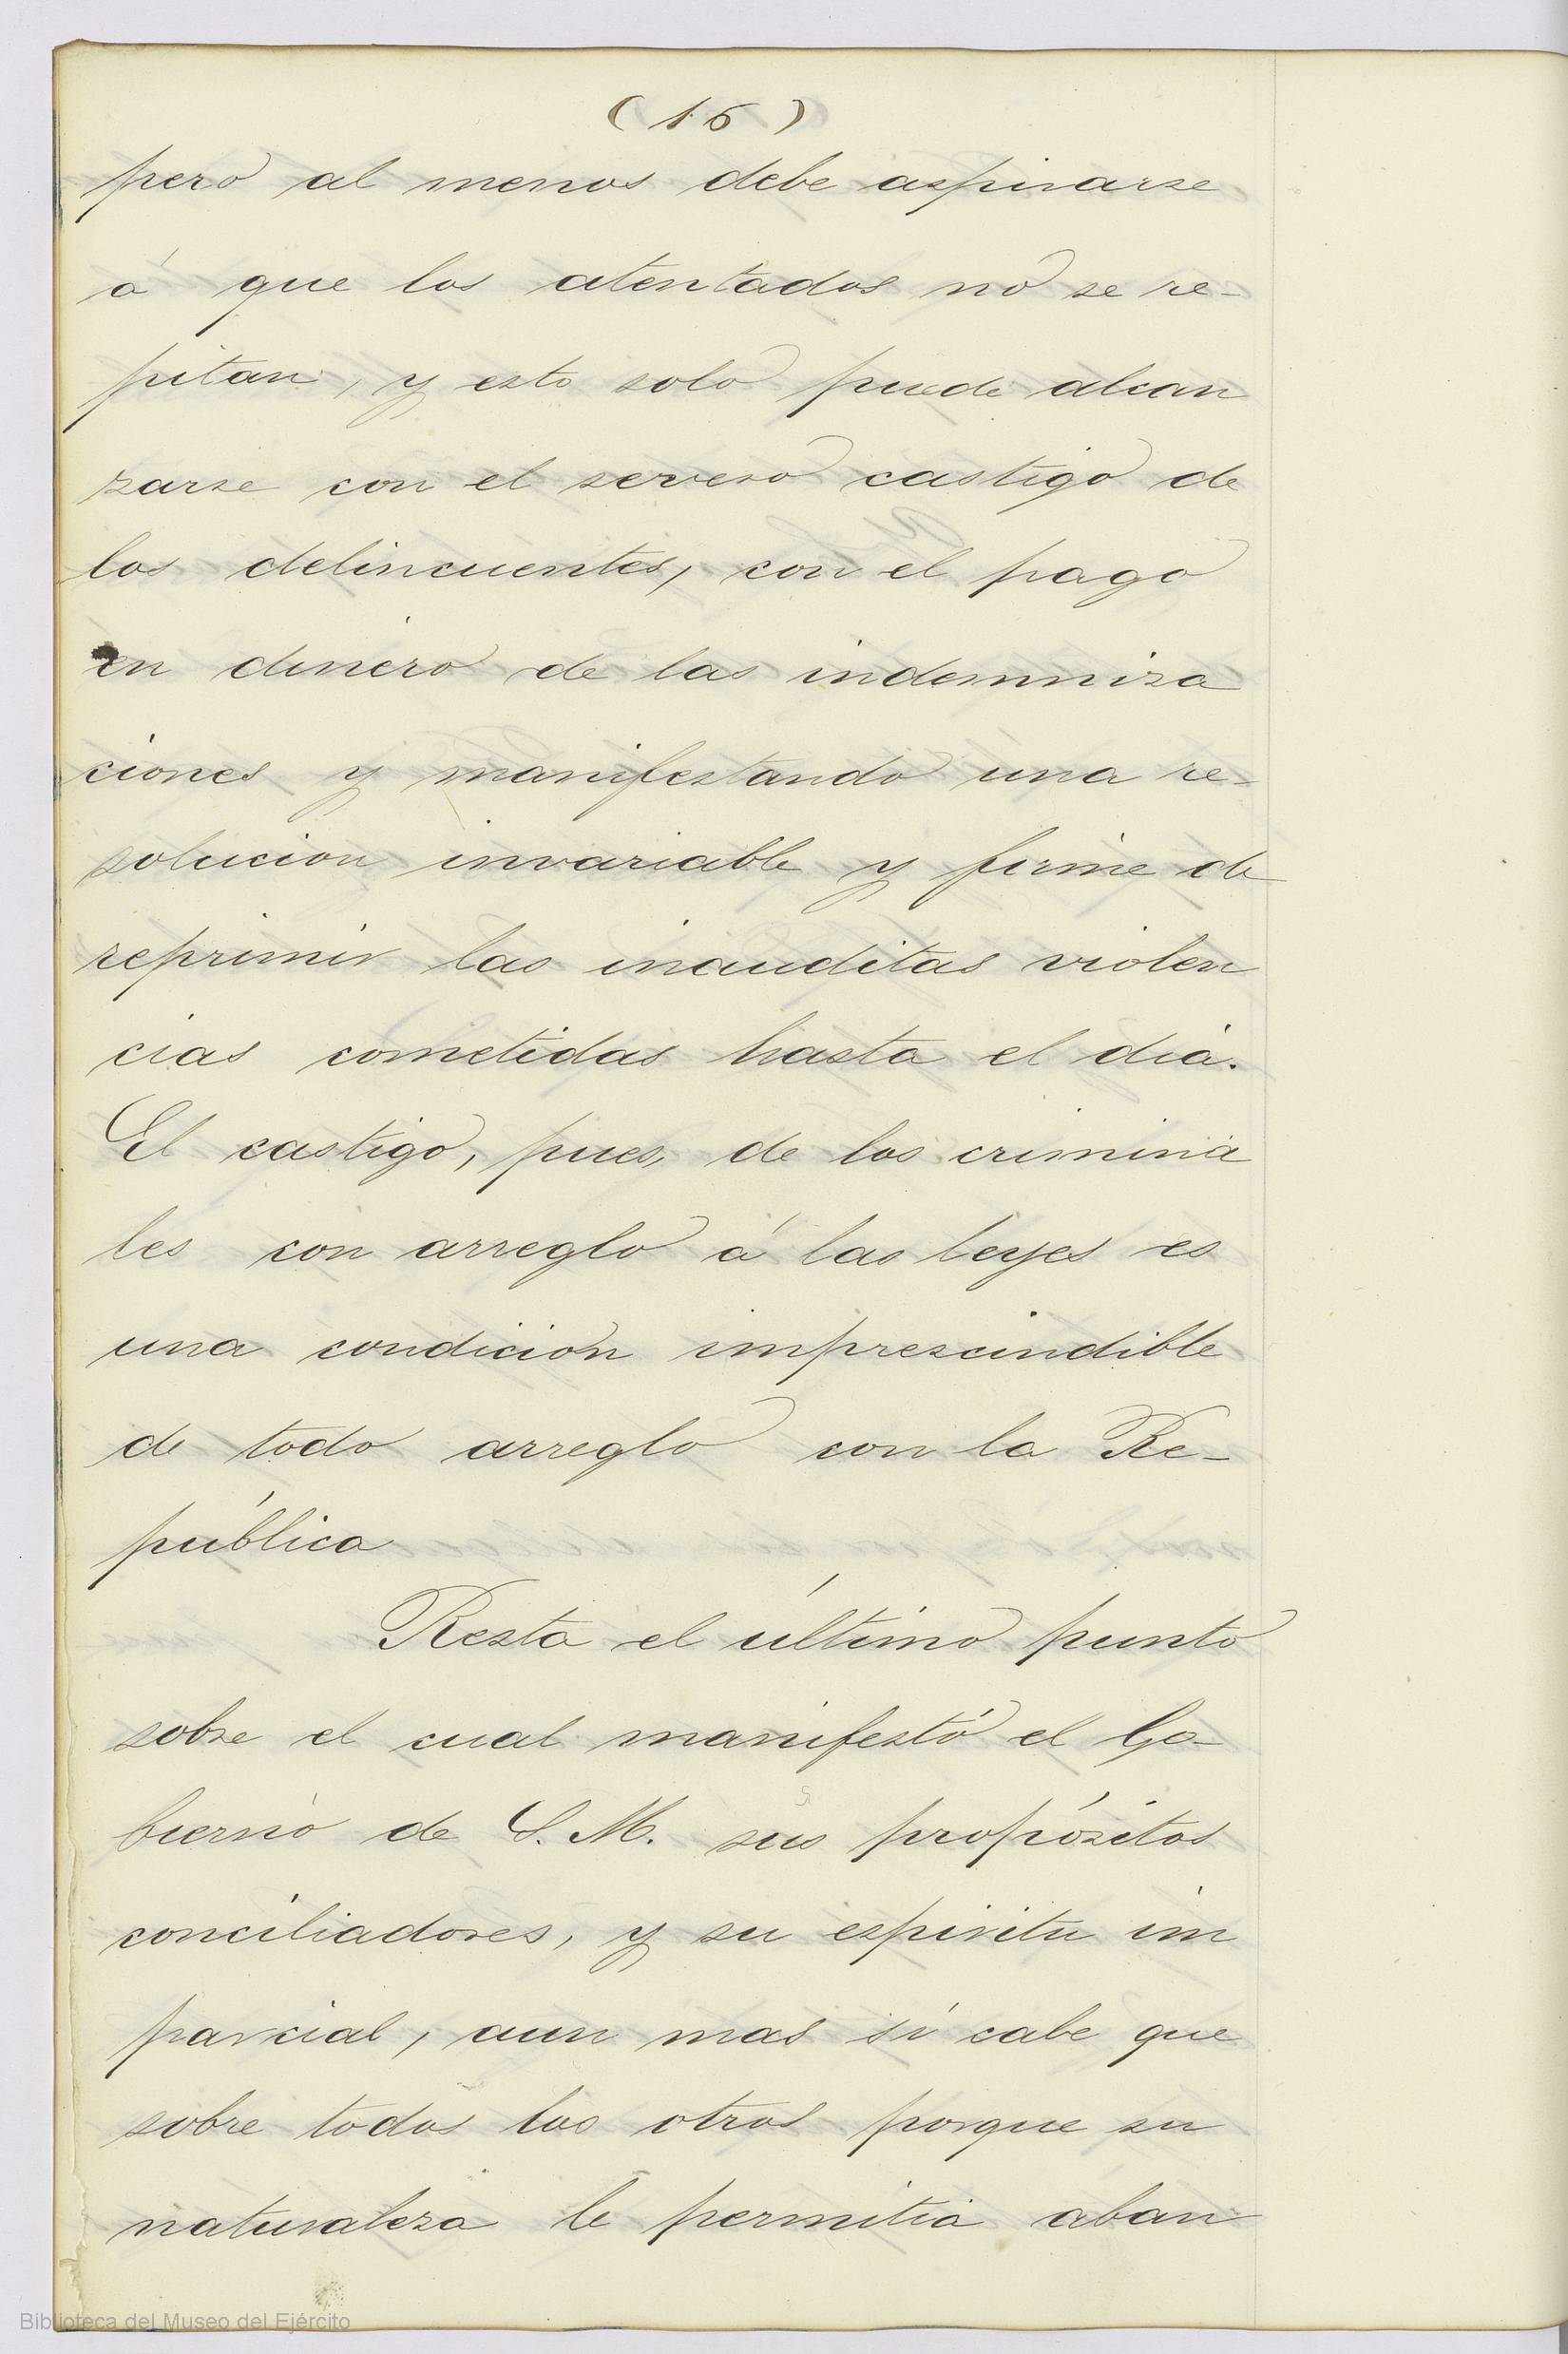 (16)
pero al menos debe aspirarse
á que los atentados no se re-
pitan, y esto solo puede alcan
zarse con el servero castigo de
los delincuentes, con el pago
en dinero de las indemniza
ciones y manifestando una re-
solucion invariable y firme de
reprimir las inauditas violen
cias cometidas hasta el dia.
El castigo, pues, de los crimina
les con arreglo á las leyes es
una condicion imprescindible
de todo arreglo con la Re-
pública
Resta el último punto
sobre el cual manifestó el Go-
bierno de S. M. sus propósitos
conciliadores, y su espiritu im
parcial, aun mas si cabe que
sobre todos los otros porque su
naturaleza le permitia aban
Biblioteca del Museo del Ejército